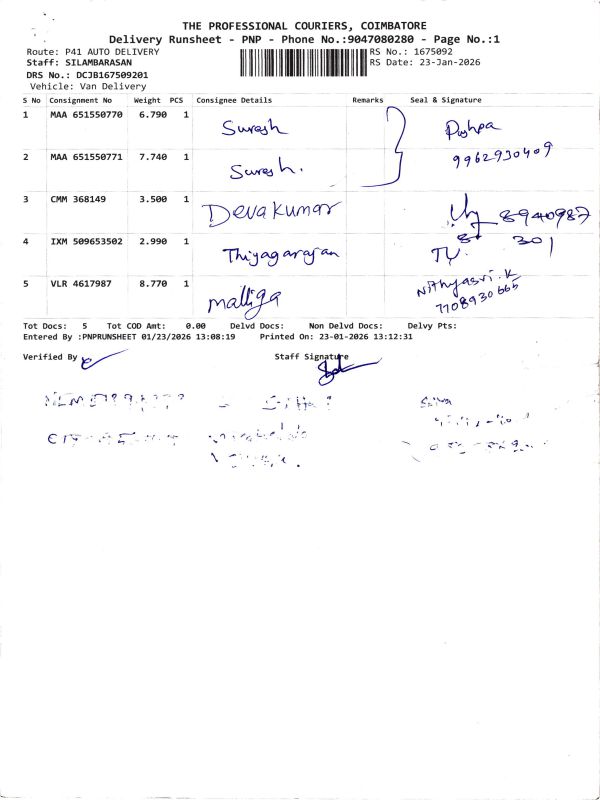 THE PROFESSIONAL COURIERS, COIMBATORE
Delivery Runsheet - PNP - Phone No.:9047080280 - Page No.:1
Route: P41 AUTO DELIVERY RS No.: 1675092
Staff: SILAMBARASAN RS Date: 23-Jan-2026
DRS No.: DCJB167509201
Vehicle: Van Delivery
S No Consignment No Weight PCS Consignee Details Remarks Seal & Signature
1 MAA 651550770 6.790 1 Suresh Pushpa
9962930409
2 MAA 651550771 7.740 1 Suresh.
3 CMM 368149 3.500 1 Devakumar 8940987
301
4 IXM 509653502 2.990 1 Thiyagarajan
5 VLR 4617987 8.770 1 Malliga Nithyasri.K
7708930665
Tot Docs: 5 Tot COD Amt: 0.00 Delvd Docs: Non Delvd Docs: Delvy Pts:
Entered By :PNPRUNSHEET 01/23/2026 13:08:19 Printed On: 23-01-2026 13:12:31
Verified By Staff Signature